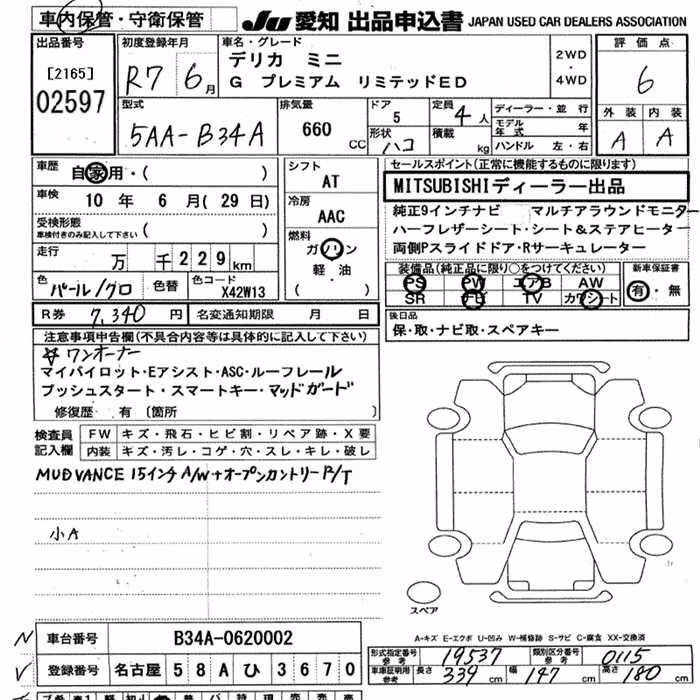 車内保管・守衛保管
JU 愛知 出品申込書 JAPAN USED CAR DEALERS ASSOCIATION
出品番号
[2165]
02597
初度登録年月
R7 6月
車名・グレード
デリカ ミニ
G プレミアム リミテッドED
2WD
・
4WD
評価点
6
型式
5AA-B34A
排気量
660 CC
ドア
5
形状
ハコ
定員
4人
積載
kg
ディーラー・並行
モデル年式 年
ハンドル 左・右
外装 内装
A A
車歴 自家用・( )
車検 10年 6月(29日)
受検形態
車検付きのみ記入して下さい ( )
走行 万 千 229km
色 パール/クロ 色替 色コード X42W13
シフト
AT
冷房
AAC
燃料
ガソリン
軽・油
( )
セールスポイント(正常に機能するものに限ります)
MITSUBISHIディーラー出品
純正9インチナビ マルチアラウンドモニター
ハーフレザーシート・シート&ステアヒーター
両側Pスライドドア・Rサーキュレーター
装備品(純正品に限り○をつけてください)
PS PW エアB AW
SR ナビ TV カワシート
新車保証書
有・無
R券 7,340円 名変通知期限 月 日
後日品
保・取・ナビ取・スペアキー
注意事項申告欄(不具合内容等は具体的に記入して下さい)
☆ワンオーナー
マイパイロット・Eアシスト・ASC・ルーフレール
プッシュスタート・スマートキー・マッドガード
修復歴・ 有 〔箇所 〕
検査員記入欄
FW キズ・飛石・ヒビ割・リペア跡・X要
内装 キズ・汚レ・コゲ・穴・スレ・キレ・破レ
MUDVANCE 15インチA/W+オープンカントリーR/T
小A
スペア
A-キズ E-エクボ U-凹み W-補修跡 S-サビ C-腐食 XX-交換済
N 車台番号 B34A-0620002
V 登録番号 名古屋 58Aひ3670
形式指定番号 参考 19537 類別区分番号 参考 0115
車庫証明用 参考 長さ 339cm 幅 147cm 高さ 180cm